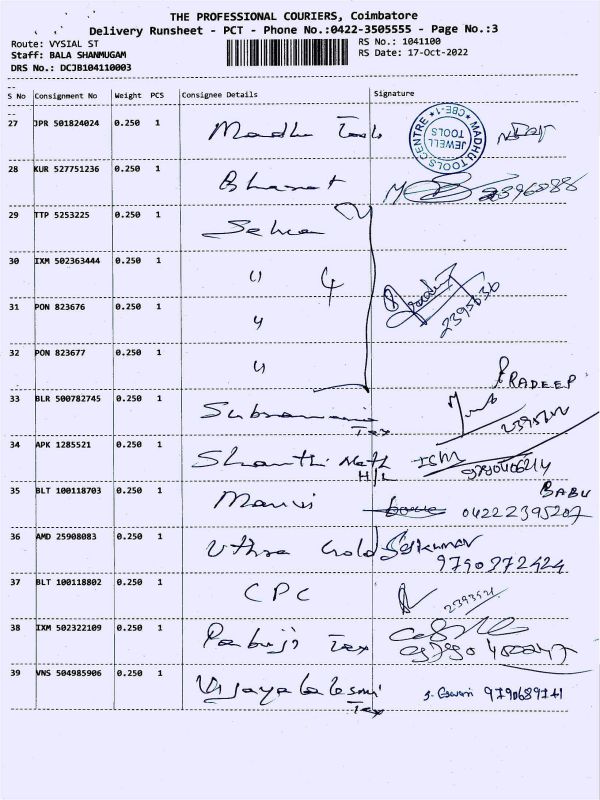 THE PROFESSIONAL COURIERS, Coimbatore
Delivery Runsheet - PCT - Phone No.:0422-3505555 - Page No.:3
Route: VYSIAL ST
RS No.: 1041100
Staff: BALA SHANMUGAM
RS Date: 17-Oct-2022
DRS No.: DCJB104110003
S No Consignment No Weight PCS Consignee Details Signature
27 JPR 501824024 0.250 1 Madhu Tools
MADHU TOOLS CENTRE * CBE-1 *
JEWELL TOOLS
28 KUR 527751236 0.250 1 Bharat
29 TTP 5253225 0.250 1
30 IXM 502363444 0.250 1 " 4
31 PON 823676 0.250 1 "
2395636
32 PON 823677 0.250 1 "
PRADEEP
33 BLR 500782745 0.250 1 Subramani Tex
34 APK 1285521 0.250 1 Shanthi Meth H/L
35 BLT 100118703 0.250 1
BABU
04222395207
36 AMD 25908083 0.250 1 Uthra Gold Sasikumar
9790972424
37 BLT 100118802 0.250 1 CPC
38 IXM 502322109 0.250 1 Pabuji Tex
39 VNS 504985906 0.250 1 Vijayalalesmi Tex